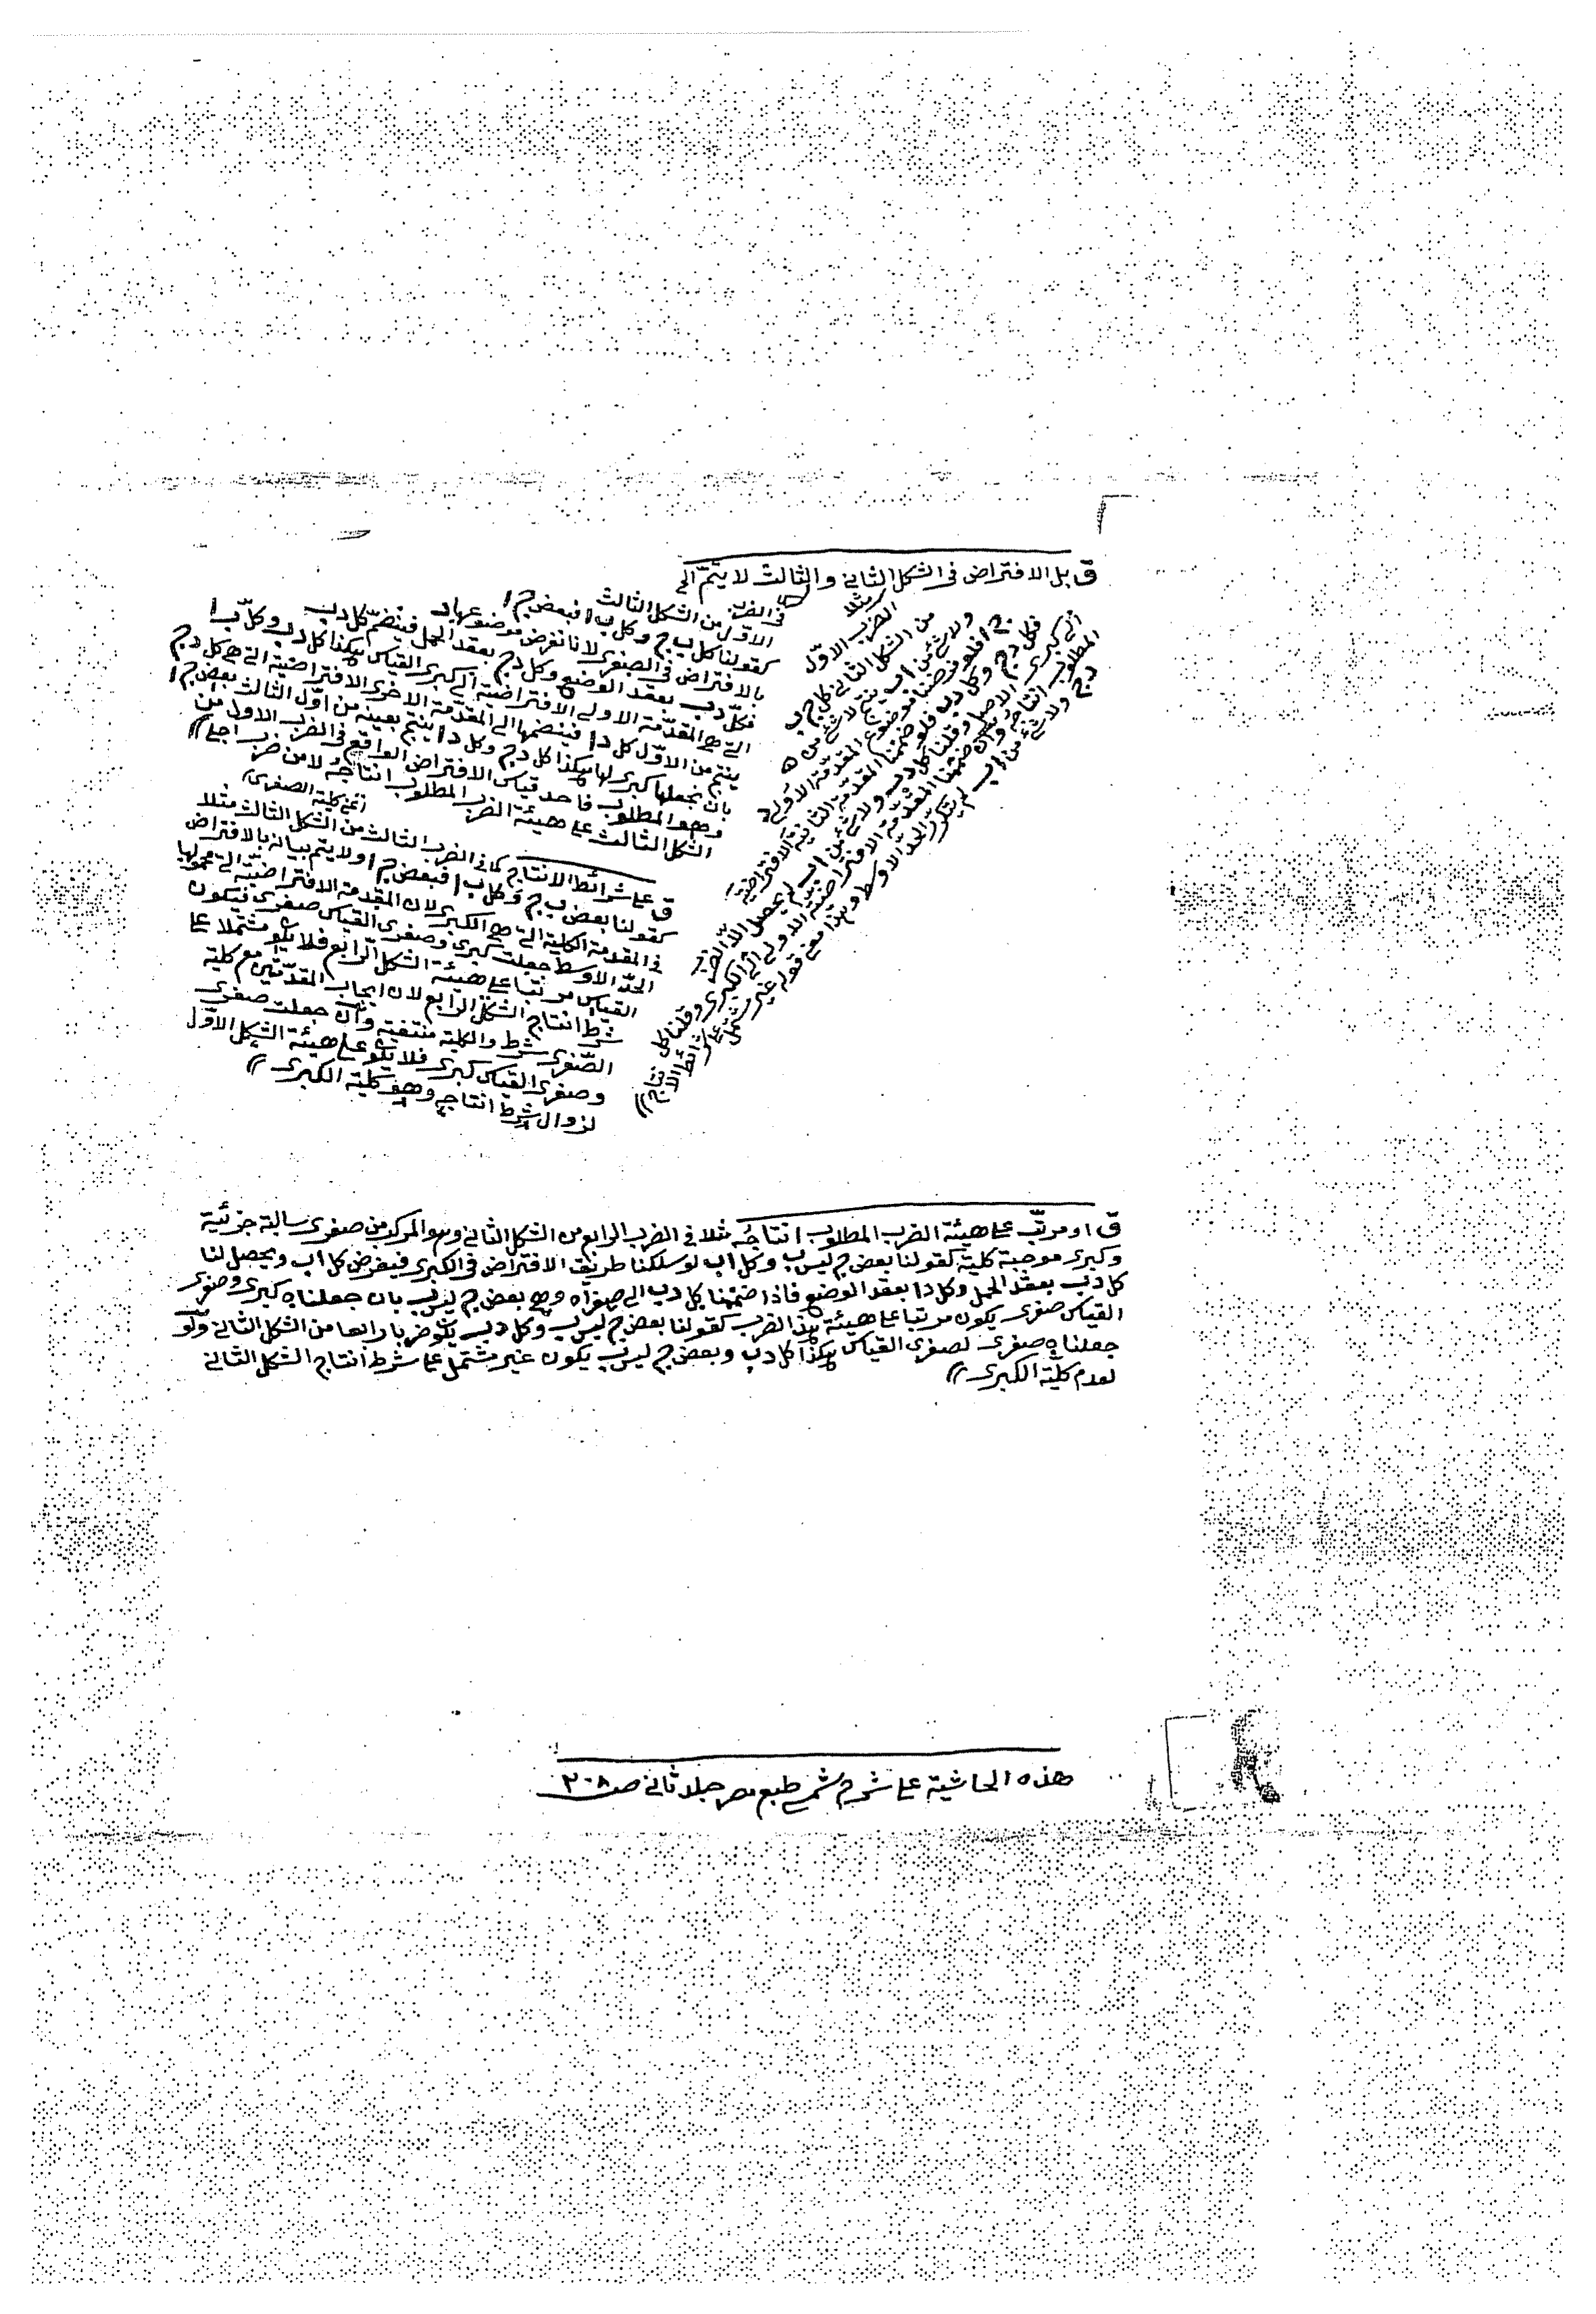 ق بل الافتراض فى الشكل الثانى و الثالث لا يتمّ الخ
مثلا
الضرب الاوّل
من الشكل الثانى كل ج ب
ولا شئ من اب ينتج لا شئ من
ج ا فلو فرضنا موضوع المقدّمة الاولى د
فكل د ج وكل د ب فلو ضممنا المقدّمة الثانية الافتراضية
الى كبرى الاصل وقلنا كل د ب ولا شئ من اب لم يحصل الّا الضرب
المطلوب انتاجه وان ضممنا المقدّمة الافتراضية الاولى الى الكبرى وقلنا كل
د ج ولا شئ من اب لم يتكرّر الحدّ الاوسط وهذا معنى قوله غير مشتمل
على شرائط الانتاج))
فى الضرب
الاوّل من الشكل الثالث
كقولنا كل ب ج وكل ب ا فبعض ج ا
بالافتراض فى الصغرى لانا نفرض موضوعها د
فكلّ د ب بعقد الوضع وكل د ج بعقد الحمل فينضمّ كل د ب
التى هى المقدّمة الاولى الافتراضية الى كبرى القياس هكذا كل د ب وكلّ ب ا
ينتج من الاوّل كل د ا فينضمها الى المقدّمة الاخرى الافتراضية التى هى كل د ج
بان نجعلها كبرى لها هكذا كل د ج وكل د ا ينتج بعينه من اوّل الثالث بعض ج ا
وهو المطلوب فاحد قياس الافتراض الواقع فى الضرب الاول من
الشكل الثالث على هيئة الضرب المطلوب انتاجه ولا من ضرب اجلى))
اعنى كلية الصغرى
ق على شرائط الانتاج كما فى الضرب الثالث من الشكل الثالث مثلا
كقولنا بعض ب ج وكل ب ا فبعض ج ا ولا يتم بيانه بالافتراض
فى المقدمة الكلية التى هى الكبرى لان المقدمة الافتراضية التى محمولها
الحدّ الاوسط جعلت كبرى وصغرى القياس صغرى فيكون
القياس مرتبا على هيئة الشكل الرابع فلا يكون مشتملا على
شرط انتاج الشكل الرابع لان ايجاب المقدّمتين مع كلية
الصّغرى شرط والكلية منتفية وان جعلت صغرى
وصغرى القياس كبرى فلا يكون على هيئة الشكل الاوّل
لزوال شرط انتاجه وهو كلية الكبرى))
ق او مرتّب على هيئة الضرب المطلوب انتاجه مثلا فى الضرب الرابع من الشكل الثانى وهو المركب من صغرى سالبة جزئية
وكبرى موجبة كلية كقولنا بعض ج ليس ب وكل اب لو سلكنا طريق الافتراض فى الكبرى فيفرض كل اب ويحصل لنا
كل د ب بعقد الحمل وكل د ا بعقد الوضع فاذا ضممنا كل د ب الى صغراه وهى بعض ج ليس ب بان جعلناه كبرى وصغرى
القياس صغرى يكون مرتبا على هيئة هذا الضرب كقولنا بعض ج ليس ب وكل د ب يكون ضربا رابعا من الشكل الثانى ولو
جعلناه صغرى لصغرى القياس هكذا كل د ب وبعض ج ليس ب يكون غير مشتمل على شرط انتاج الشكل الثانى
لعدم كليّة الكبرى))
هذه الحاشية على شرح شمسى طبع مصر جلد ثانى صـ ٢٠٨